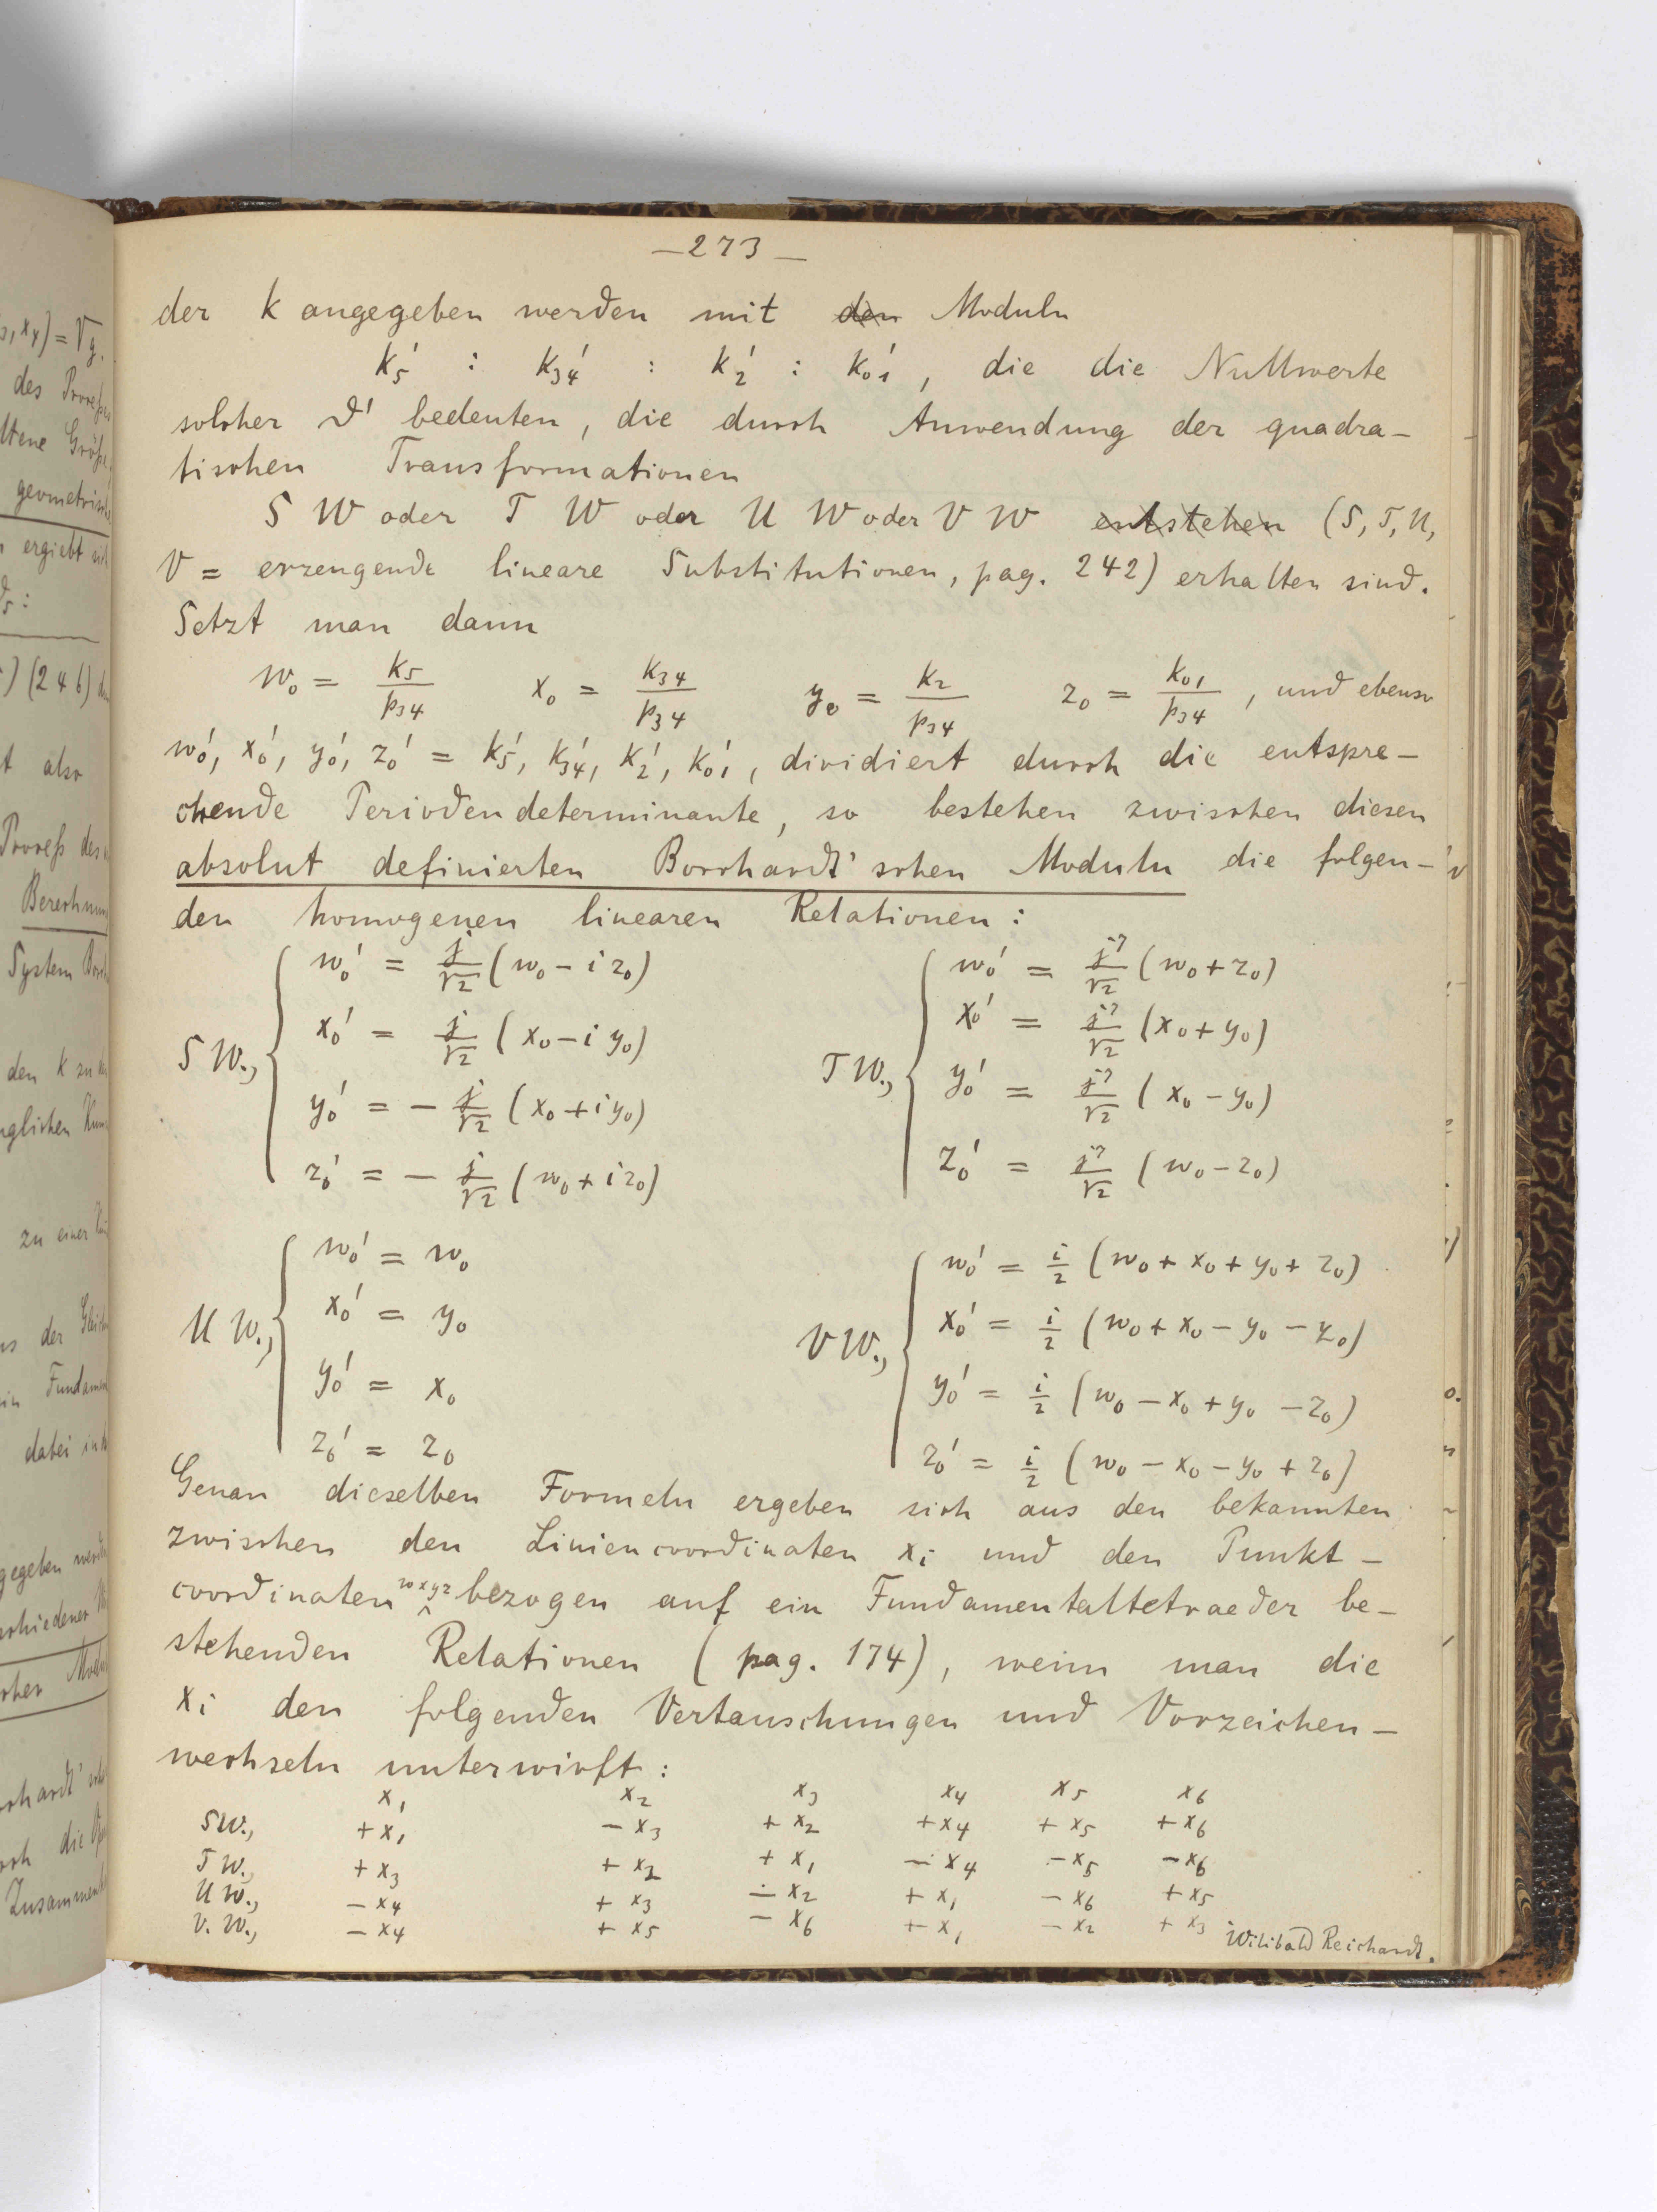 —273—
der k angegeben werden mit den Moduln
k₅' : k₃₄' : k₂' : k₀₁', die die Nullwerte
solcher ϑ' bedeuten, die durch Anwendung der quadra-
tischen Transformationen
S W oder T W oder U W oder V W entstehen (S, T, U,
V = erzeugende lineare Substitutionen, pag. 242) erhalten sind.
Setzt man dann
w₀ = k₅/p₃₄ x₀ = k₃₄/p₃₄ y₀ = k₂/p₃₄ z₀ = k₀₁/p₃₄, und ebenso
w₀', x₀', y₀', z₀' = k₅', k₃₄', k₂', k₀₁', dividiert durch die entspre-
chende Periodendeterminante, so bestehen zwischen diesen
absolut definierten Borchardt'schen Moduln die folgen-
den homogenen linearen Relationen:
S W., w₀' = j/√2 (w₀ - i z₀)
x₀' = j/√2 (x₀ - i y₀)
y₀' = - j/√2 (x₀ + i y₀)
z₀' = - j/√2 (w₀ + i z₀)
T W., w₀' = j⁷/√2 (w₀ + z₀)
x₀' = j⁷/√2 (x₀ + y₀)
y₀' = j⁷/√2 (x₀ - y₀)
z₀' = j⁷/√2 (w₀ - z₀)
U W., w₀' = w₀
x₀' = y₀
y₀' = x₀
z₀' = z₀
V W., w₀' = i/2 (w₀ + x₀ + y₀ + z₀)
x₀' = i/2 (w₀ + x₀ - y₀ - z₀)
y₀' = i/2 (w₀ - x₀ + y₀ - z₀)
z₀' = i/2 (w₀ - x₀ - y₀ + z₀)
Genau dieselben Formeln ergeben sich aus den bekannten
zwischen den Liniencoordinaten xᵢ und den Punkt-
coordinaten wxyz bezogen auf ein Fundamentaltetraeder be-
stehenden Relationen (pag. 174), wenn man die
xᵢ den folgenden Vertauschungen und Vorzeichen-
wechseln unterwirft:
x₁ x₂ x₃ x₄ x₅ x₆
SW., +x₁ -x₃ +x₂ +x₄ +x₅ +x₆
T W., +x₃ +x₂ +x₁ -x₄ -x₅ -x₆
U W., -x₄ +x₃ -x₂ +x₁ -x₆ +x₅
V. W., -x₄ +x₅ -x₆ +x₁ -x₂ +x₃
Wilibald Reichardt.